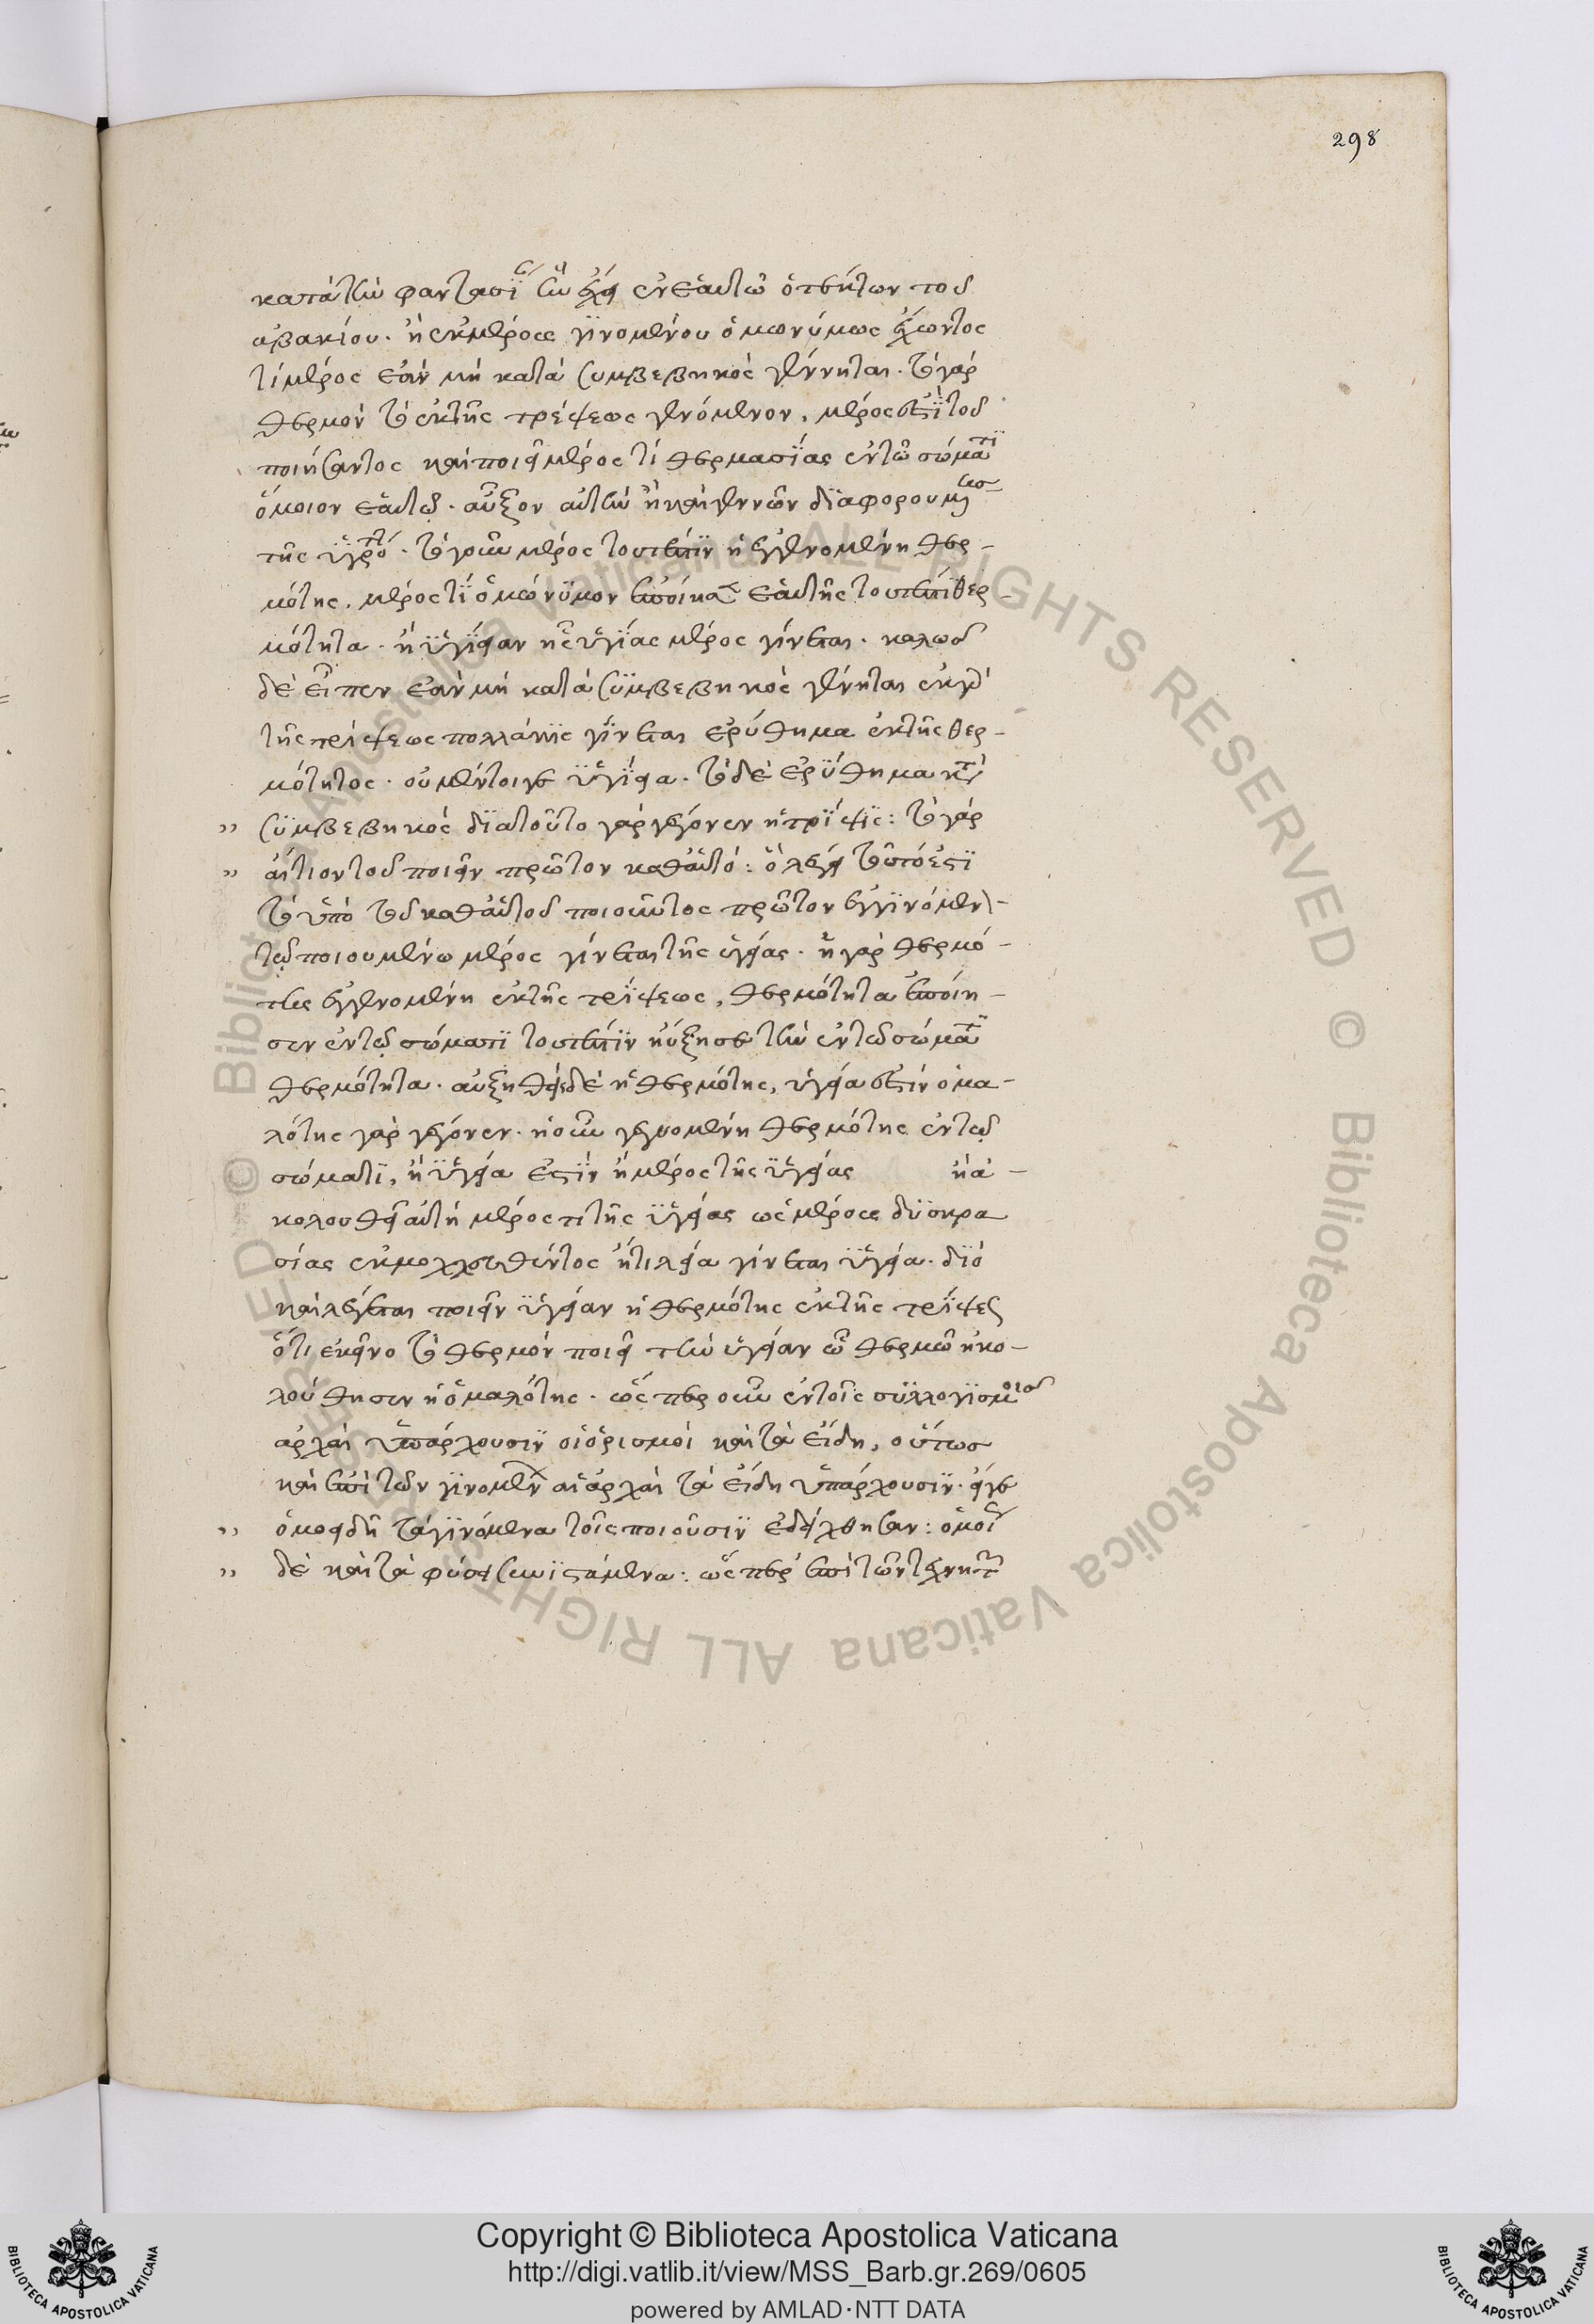 298
κατὰ τὴν φαντασίαν ἣν ἔχει ἐν ἑαυτῶ ὁ τεκτων τοῦ
ἀβακίου. ἢ ἐκ μέρους γϊνομένου ὁμωνύμως ἔχωντος
τί μέρος ἐὰν μὴ κατὰ συμβεβηκὸς γένηται. τὸ γὰρ
θερμὸν τὸ ἐκ τῆς τρίψεως γενόμενον, μέρος ἐστὶ τοῦ
ποιήσαντος καὶ ποιεῖ μέρος τί θερμασΐας ἐν τῶ σώματϊ
ὅμοιον ἑαυτῶ. αὖξον αὐτὴν ἢ καὶ γεννῶν
τῆς. τὸ γοῦν μέρος τουτέστϊν ἡ ἐγγενομένη θερ-
μότης. μέρος τῒ ὁμώνϋμον ἐποίησεν ἑαυτῆς τουτέστϊ θερ-
μότητα. ἢ ὑγΐειαν ἢ ὑγΐας μέρος γίνεται. καλῶς
δὲ εἶπεν ἐὰν μὴ κατὰ συμβεβηκὸς γένηται ἐκ γὰρ
τῆς τρίψεως πολλάκϊς γΐνεται ἐρύθημα ἐκ τῆς θερ-
μότητος. οὐ μέντοιγε ὑγΐεια. τὸ δὲ ἐρύθημα κατὰ
„ συμβεβηκὸς διὰ τοῦτο γὰρ γέγονεν ἡ τρίψϊς: τὸ γὰρ
„ αἴτιον τοῦ ποιεῖν πρῶτον καθ' αὑτό: ὃ λέγει τοῦτό ἐστϊ
τὸ ὑπὸ τοῦ καθ' αὑτοῦ ποιοῦντος πρῶτον ἐγγϊνόμεν-
τῶ ποιουμένω μέρος γίνεται τῆς ὑγείας. ἡ γὰρ θερμό-
της ἐγγενομένη ἐκ τῆς τρΐψεως, θερμότητα ἐποίη-
σεν ἐν τῶ σώματϊ τουτέστϊν ηὔξησε τὴν ἐν τῶ σώματϊ
θερμότητα. αὐξηθεῖσα δὲ ἡ θερμότης, ὑγεία ἐστὶν ὁμα-
λότης γὰρ γέγονεν. ἡ οὖν γενομένη θερμότης ἐν τῶ
σώματϊ, ἢ ὑγεία ἐστϊν ἢ μέρος τῆς ὑγείας ἢ ἀ-
κολουθεῖ αὐτῆ μέρος τι τῆς ὑγείας ὡς μέρους δϋσκρα
σίας γίνεται ὑγεία. δϊὸ
καὶ λέγεται ποιεῖν ὑγείαν ἡ θερμότης ἐκ τῆς τρΐψεως
ὅτι ἐκεῖνο τὸ θερμὸν ποιεῖ τὴν ὑγείαν ὧ θερμῶ ἠκο-
λούθησεν ἡ ὁμαλότης. ὥσπερ οὖν ἐν τοῖς συλλογϊσμοῖς
ἀρχαὶ ὑπάρχουσϊν οἱ ὁρισμοὶ καὶ τὰ εἴδη, οὕτως
καὶ ἐπὶ τῶν γϊνομένων αἱ ἀρχαὶ τὰ εἴδη ὑπάρχουσϊν. εἴγε
„ ὁμοειδῆ τὰ γϊνόμενα τοῖς ποιοῦσιν ἐδείχθησαν: ὁμοίως
„ δὲ καὶ τὰ φύσει συνϊστάμενα: ὥσπερ ἐπὶ τῶν τεχνητῶν
Copyright © Biblioteca Apostolica Vaticana
http://digi.vatlib.it/view/MSS_Barb.gr.269/0605
powered by AMLAD·NTT DATA
BIBLIOTECA APOSTOLICA VATICANA
BIBLIOTECA APOSTOLICA VATICANA
© Biblioteca Apostolica Vaticana ALL RIGHTS RESERVED
© Biblioteca Apostolica Vaticana ALL RIGHTS RESERVED